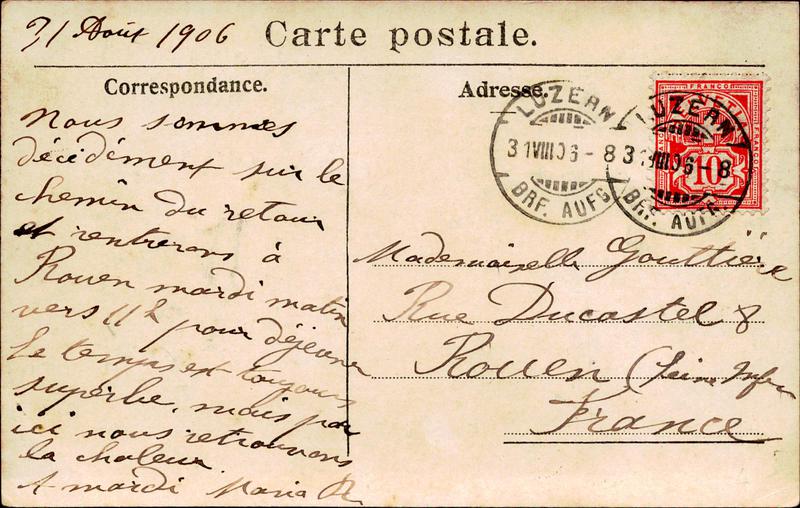 31 Août 1906
Carte postale.
Correspondance.
Nous sommes
décidément sur le
chemin du retour
et rentrerons à
Rouen mardi matin
vers 11h pour déjeuner
Le temps est toujours
superbe, mais par
ici nous retrouvons
la chaleur
A mardi Maria
Adresse.
LUZERN
31 VIII 06 - 8
BRF. AUFG
LUZERN
31 VIII 06 - 8
BRF. AUFG
FRANCO
10
Mademoiselle Gouttière
Rue Ducastel 8
Rouen (Seine Infre
France